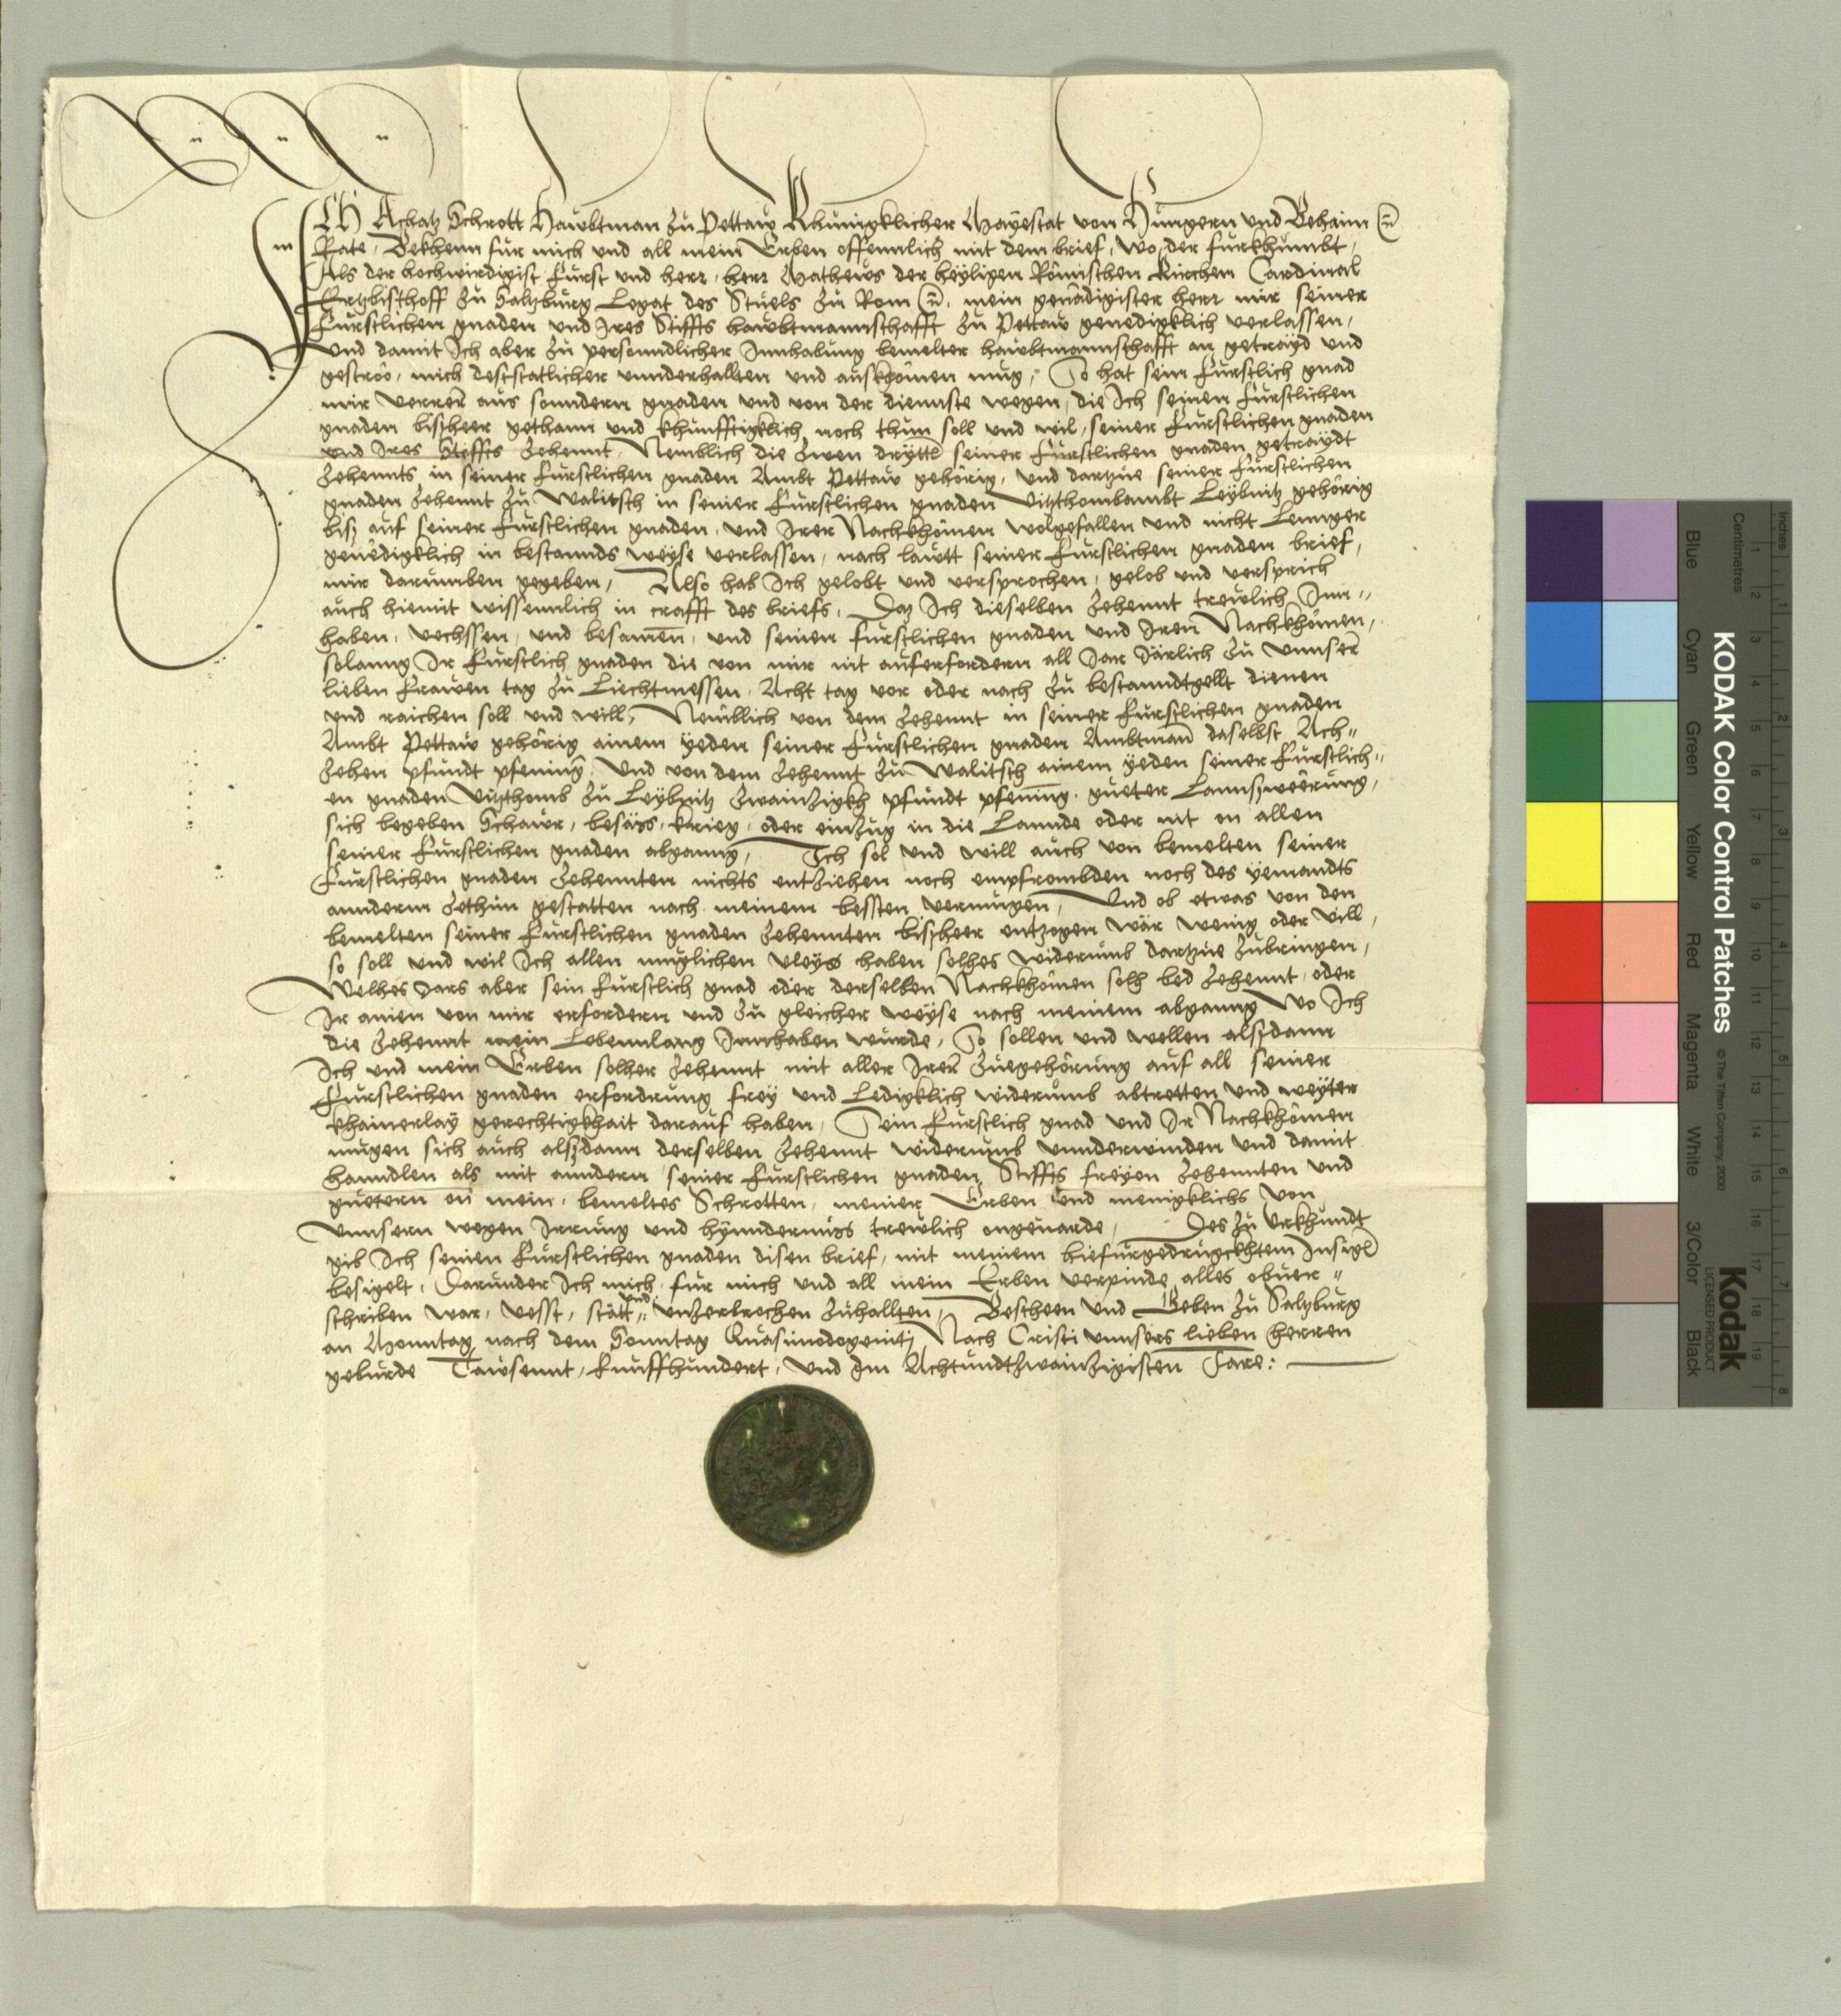 ICH Achatz Schrott Hawbtman zu Pettaw Khunigklicher Mayestat von Hungern und Behaim ꝛc
Rate, Bekhenn fur mich und all mein Erben offennlich mit dem brief, wo der furkhumbt,
Als der hochwirdigist Furst und herr, herr Matheus der heyligen Römischen Kirchen Cardinal
Ertzbisthoff zu Saltzburg Legat des Stuels zu Rom ꝛc. mein genadigister herr mir seiner
Furstlichen gnaden und Ires Stiffts hawbtmannschafft zu Pettaw genedigklich verlassen,
Und damit Ich aber zu personndlicher Innhabung bemelter hawbtmannschafft an getrayd und
gestroo, mich deststatlicher unnderhallten und auskhömen mug, So hat sein Furstlich gnad
mir verrer aus sonndern gnaden und von der diennste wegen, die Ich seinen Furstlichen
gnaden bisheer gethann und khunfftigklich noch thun soll und wil, seiner Furstlichen gnaden
und Ires Stiffts Zehennt, Nemblich die Zwen drýttl seiner Furstlichen gnaden getraydt
Zehennts in seiner Furstlichen gnaden Ambt Pettaw gehörig, und dartzue seiner Furstlichen
gnaden Zehennt zu Walitsch in seiner Furstlichen gnaden Vitzthombambt Leybnitz gehörig
bis auf seiner Furstlichen gnaden, und Irer Nachkhömen wolgefallen und nicht Lennger
genedigklich in bestannds weyse verlassen, nach lawtt seiner Furstlichen gnaden brief,
mir darumben gegeben, Also hab Ich gelobt und versprochen, gelob und versprich
auch hiemit wissennlich in crafft des briefs, Daz Ich dieselben Zehennt trewlich Inn=
haben, vechssen, und besamen, und seinen furstlichen gnaden und Iren Nachkhömen,
solanng Ir Furstlich gnaden die von mir nit auferfordern all Jar Järlich zu unnser
lieben Frawen tag zu Liechtmessen, Acht tag vor oder nach zu bestanndtgellt dienen
und raichen soll und will, Nemblich von dem Zehennt in seiner Furstlichen gnaden
Ambt Pettaw gehörig ainem yeden seiner Furstlichen gnaden Ambtman daselbst Ach=
zehen pfundt pfening, Und von dem Zehennt zu Walitsch ainem yeden seiner Furstlich=
en gnaden Vitzthomb zu Leybnitz Zwainzigkh pfundt pfening, gueter Lannswerung,
sich begeben Schawr, besäss, krieg, oder einzug in die Lannde oder nit in allen
seiner Furstlichen gnaden abganng, Ich sol und will auch von bemelten seiner
Furstlichen gnaden Zehennten nichts entziehen noch empfrombden noch des yemandts
anndern zethun gestatten nach meinem bessten vermugen, Und ob etwas von den
bemelten seiner Furstlichen gnaden Zehennten bisheer entzogen wär wenig oder vill,
so soll und wil Ich allen muglichen vleys haben solhes widerumb dartzue zubringen,
Welhes Jars aber sein Furstlich gnad oder derselben Nachkhömen solh bed Zehennt, oder
Ir ainen von mir erfordern und zu gleicher weyse nach meinem abganng Wo Ich
die Zehennt mein Lebennlang Innhaben wurde, So sollen und wellen alsdann
Ich und mein Erben solher Zehennt mit aller Irer Zuegehörung auf all seiner
Furstlichen gnaden erfordrung frey und Ledigklich widerumb abtretten und weyter
khainerlay gerechtigkhait darauf haben, Sein Furstlich gnad und Ir Nachkhömen
mugen sich auch alsdann derselben Zehennt widerumb unnderwinden und damit
hanndlen als mit anndern seiner Furstlichen gnaden Stiffts freyen Zehennten und
guetern on mein, bemeltes Schrotten, meiner Erben und menigklichs von
unnsern wegen Irrung und hynndernuss trewlich ongeuarde, Des zu Urkhundt
gib Ich seinen Furstlichen gnaden disen brief, mit meinem hiefurgedrugckhtem Insigl
besigelt, Darunder Ich mich fur mich und all mein Erben verpinde alles obuer=
schriben war, vesst, stätt und unzerbrochen zuhallten, Bescheen und Geben zu Saltzburg
an Monntag nach dem Sonntag Quasimodogeniti Nach Cristi unnsers lieben herren
geburde Tawsennt, Funffhundert, und Im Achtundtzwainzigisten Jare:
KODAK Color Control Patches
© The Tiffen Company, 2000
Kodak
LICENSED PRODUCT
Inches
Centimetres
Blue Cyan Green Yellow Red Magenta White 3/Color Black